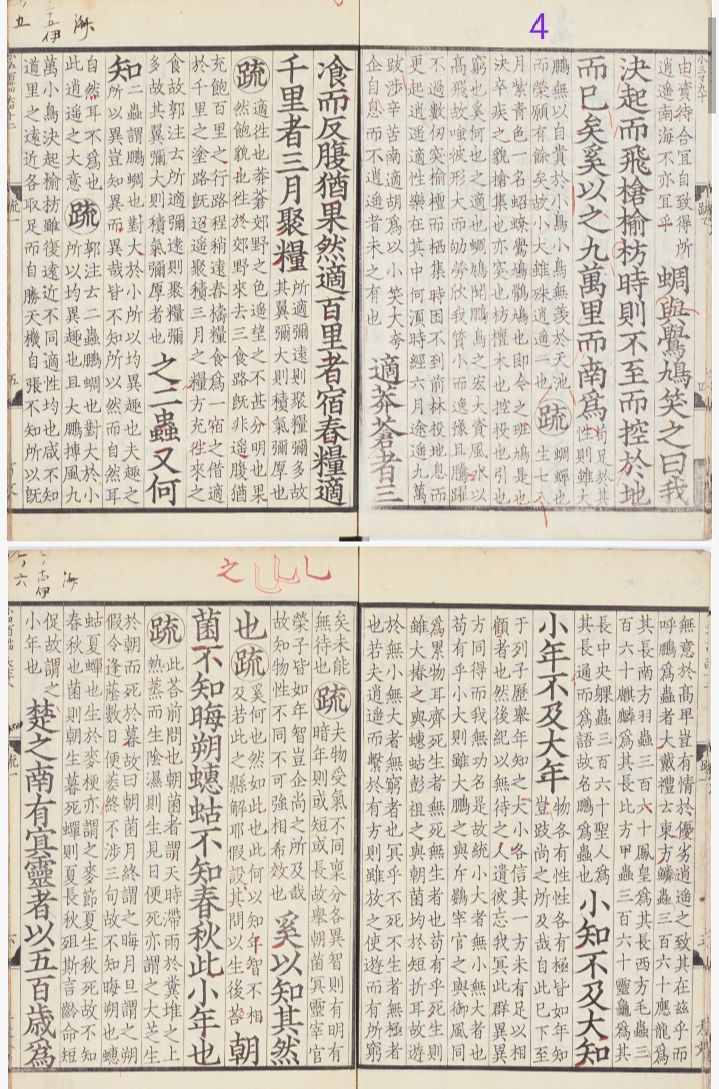 由資待合宜自致得所
逍遙南海不亦宜乎
蜩與鷽鳩笑之曰我
決起而飛槍榆枋時則不至而控於地
而已矣奚以之九萬里而南為
苟足於其
性則雖大
鵬無以自貴於小鳥小鳥無羨於天池
而榮願有餘矣故小大雖殊逍遙一也
疏
蜩蟬也
生七八
月紫青色一名蛁蟟鷽鳩鶻鳩也即今之班鳩是也
決卒疾之貌槍集也亦突也枋檀木也控投也引也
窮也奚何也之適也蜩鳩聞鵬鳥之宏大資風水以
高飛故嗤彼形大而劬勞欣我質小而逸豫且騰躍
不過數仞突榆檀而栖集時困不到前林投地息而
更起逍遙適性樂在其中何須時經六月途遙九萬
跋涉辛苦南適胡為以小笑大夸
企自息而不逍遙者未之有也
適莽蒼者三
飡而反腹猶果然適百里者宿舂糧適
千里者三月聚糧
所適彌遠則聚糧彌多故
其翼彌大則積氣彌厚也
疏
適往也莽蒼郊野之色遙望之不甚分明也果
然飽貌也往於郊野來去三食路既非遙腹猶
充飽百里之行路程稍遠舂擣糧食為一宿之借適
於千里之塗路既迢遙聚積三月之糧方充往來之
食故郭注云所適彌遠則聚糧彌
多故其翼彌大則積氣彌厚者也
之二蟲又何
知
二蟲謂鵬蜩也對大於小所以均異趣也夫趣之
所以異豈知異而異哉皆不知所以然而自然耳
自然耳不為也
此逍遙之大意
疏
郭注云二蟲鵬蜩也對大於小
所以均異趣也且大鵬摶風九
萬小鳥決起榆枋雖復遠近不同適性均也咸不知
道里之遠近各取足而自勝天機自張不知所以既
無意於高卑豈有情於優劣逍遙之致其在茲乎而
呼鵬為蟲者大戴禮云東方鱗蟲三百六十應龍為
其長南方羽蟲三百六十鳳皇為其長西方毛蟲三
百六十麒麟為其長北方甲蟲三百六十靈龜為其
長中央躶蟲三百六十聖人為
其長通而為語故名鵬為蟲也
小知不及大知
小年不及大年
物各有性性各有極皆如年知
豈跂尚之所及哉自此已下至
于列子歷舉年知之大小各信其一方未有足以相
傾者也然後統以無待之人遺彼忘我冥此群異異
方同得而我無功名是故統小大者無小無大者也
苟有乎小大則雖大鵬之與斥鷃宰官之與御風同
為累物耳齊死生者無死無生者也苟有乎死生則
雖大椿之與蟪蛄彭祖之與朝菌均於短折耳故遊
於無小無大者無窮者也冥乎不死不生者無極者
也若夫逍遙而繫於有方則雖放之使遊而有所窮
矣未能
無待也
疏
夫物受氣不同稟分各異智則有明有
暗年則或短或長故舉朝菌冥靈宰官
榮子皆如年智豈企尚之所及哉
故知物性不同不可強相希效也
奚以知其然
也
疏
奚何也然如此也此何以知年智不相
及若此之縣解耶假設其問以生後荅
朝
菌不知晦朔蟪蛄不知春秋此小年也
疏
此荅前問也朝菌者謂天時滯雨於糞堆之上
熱蒸而生陰濕則生見日便死亦謂之大芝生
於朝而死於暮故曰朝菌月終謂之晦月旦謂之朔
假令逢陰數日便萎終不涉三旬故不知晦朔也蟪
蛄夏蟬也生於麥梗亦謂之麥節夏生秋死故不知
春秋也菌則朝生暮死蟬則夏長秋殂斯言齡命短
促故謂之
小年也
楚之南有冥靈者以五百歲為
4
之